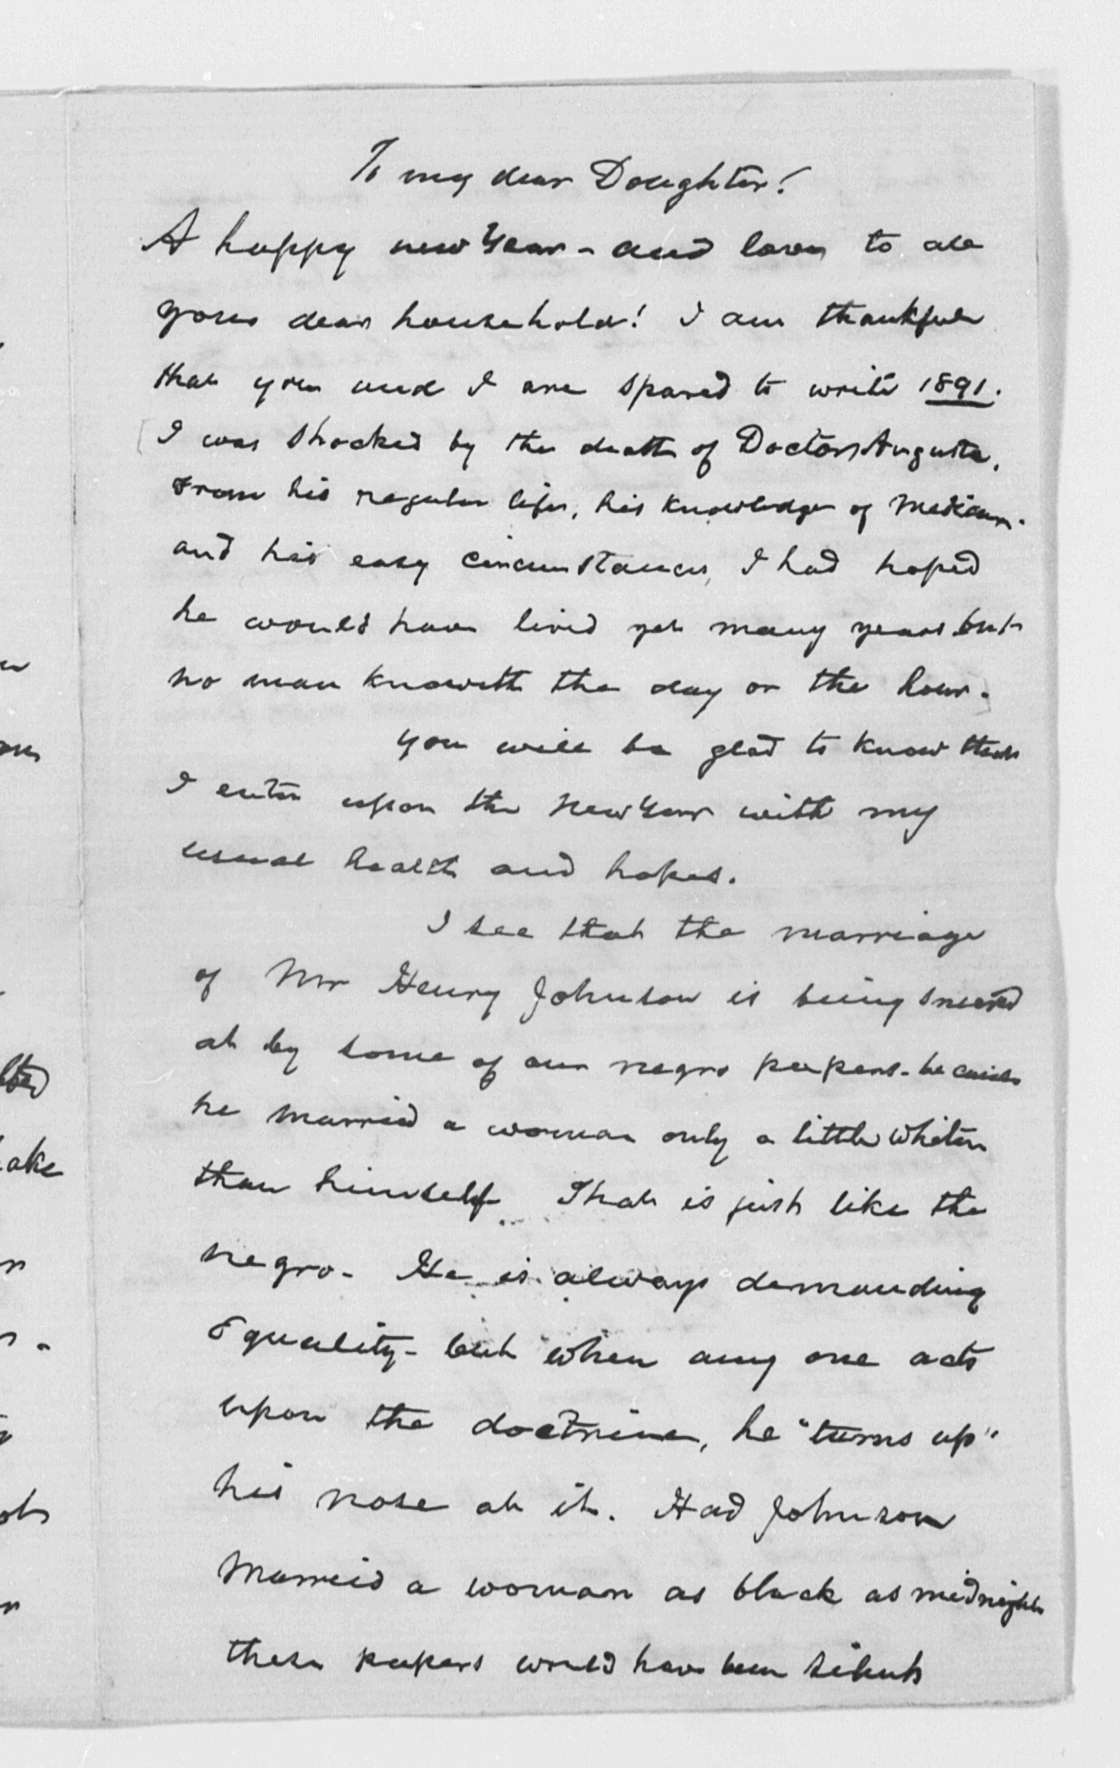 To my dear Daughter!
A happy new Year - and love to all
your dear household! I am thankful
that you and I are spared to write 1891.
I was shocked by the death of Doctor Augusta.
From his regular life, his knowledge of Medicine.
and his easy circumstances, I had hoped
he would have lived yet many years but
no man knoweth the day or the hour.
You will be glad to know that
I enter upon the New Year with my
usual health and hopes.
I see that the marriage
of Mr Henry Johnson is being sneered
at by some of our negro papers - because
he married a woman only a little whiter
than himself That is just like the
negro - He is always demanding
Equality - but when any one acts
upon the doctrine, he "turns up"
his nose at it. Had Johnson
Married a woman as black as midnight
these papers would have been silent